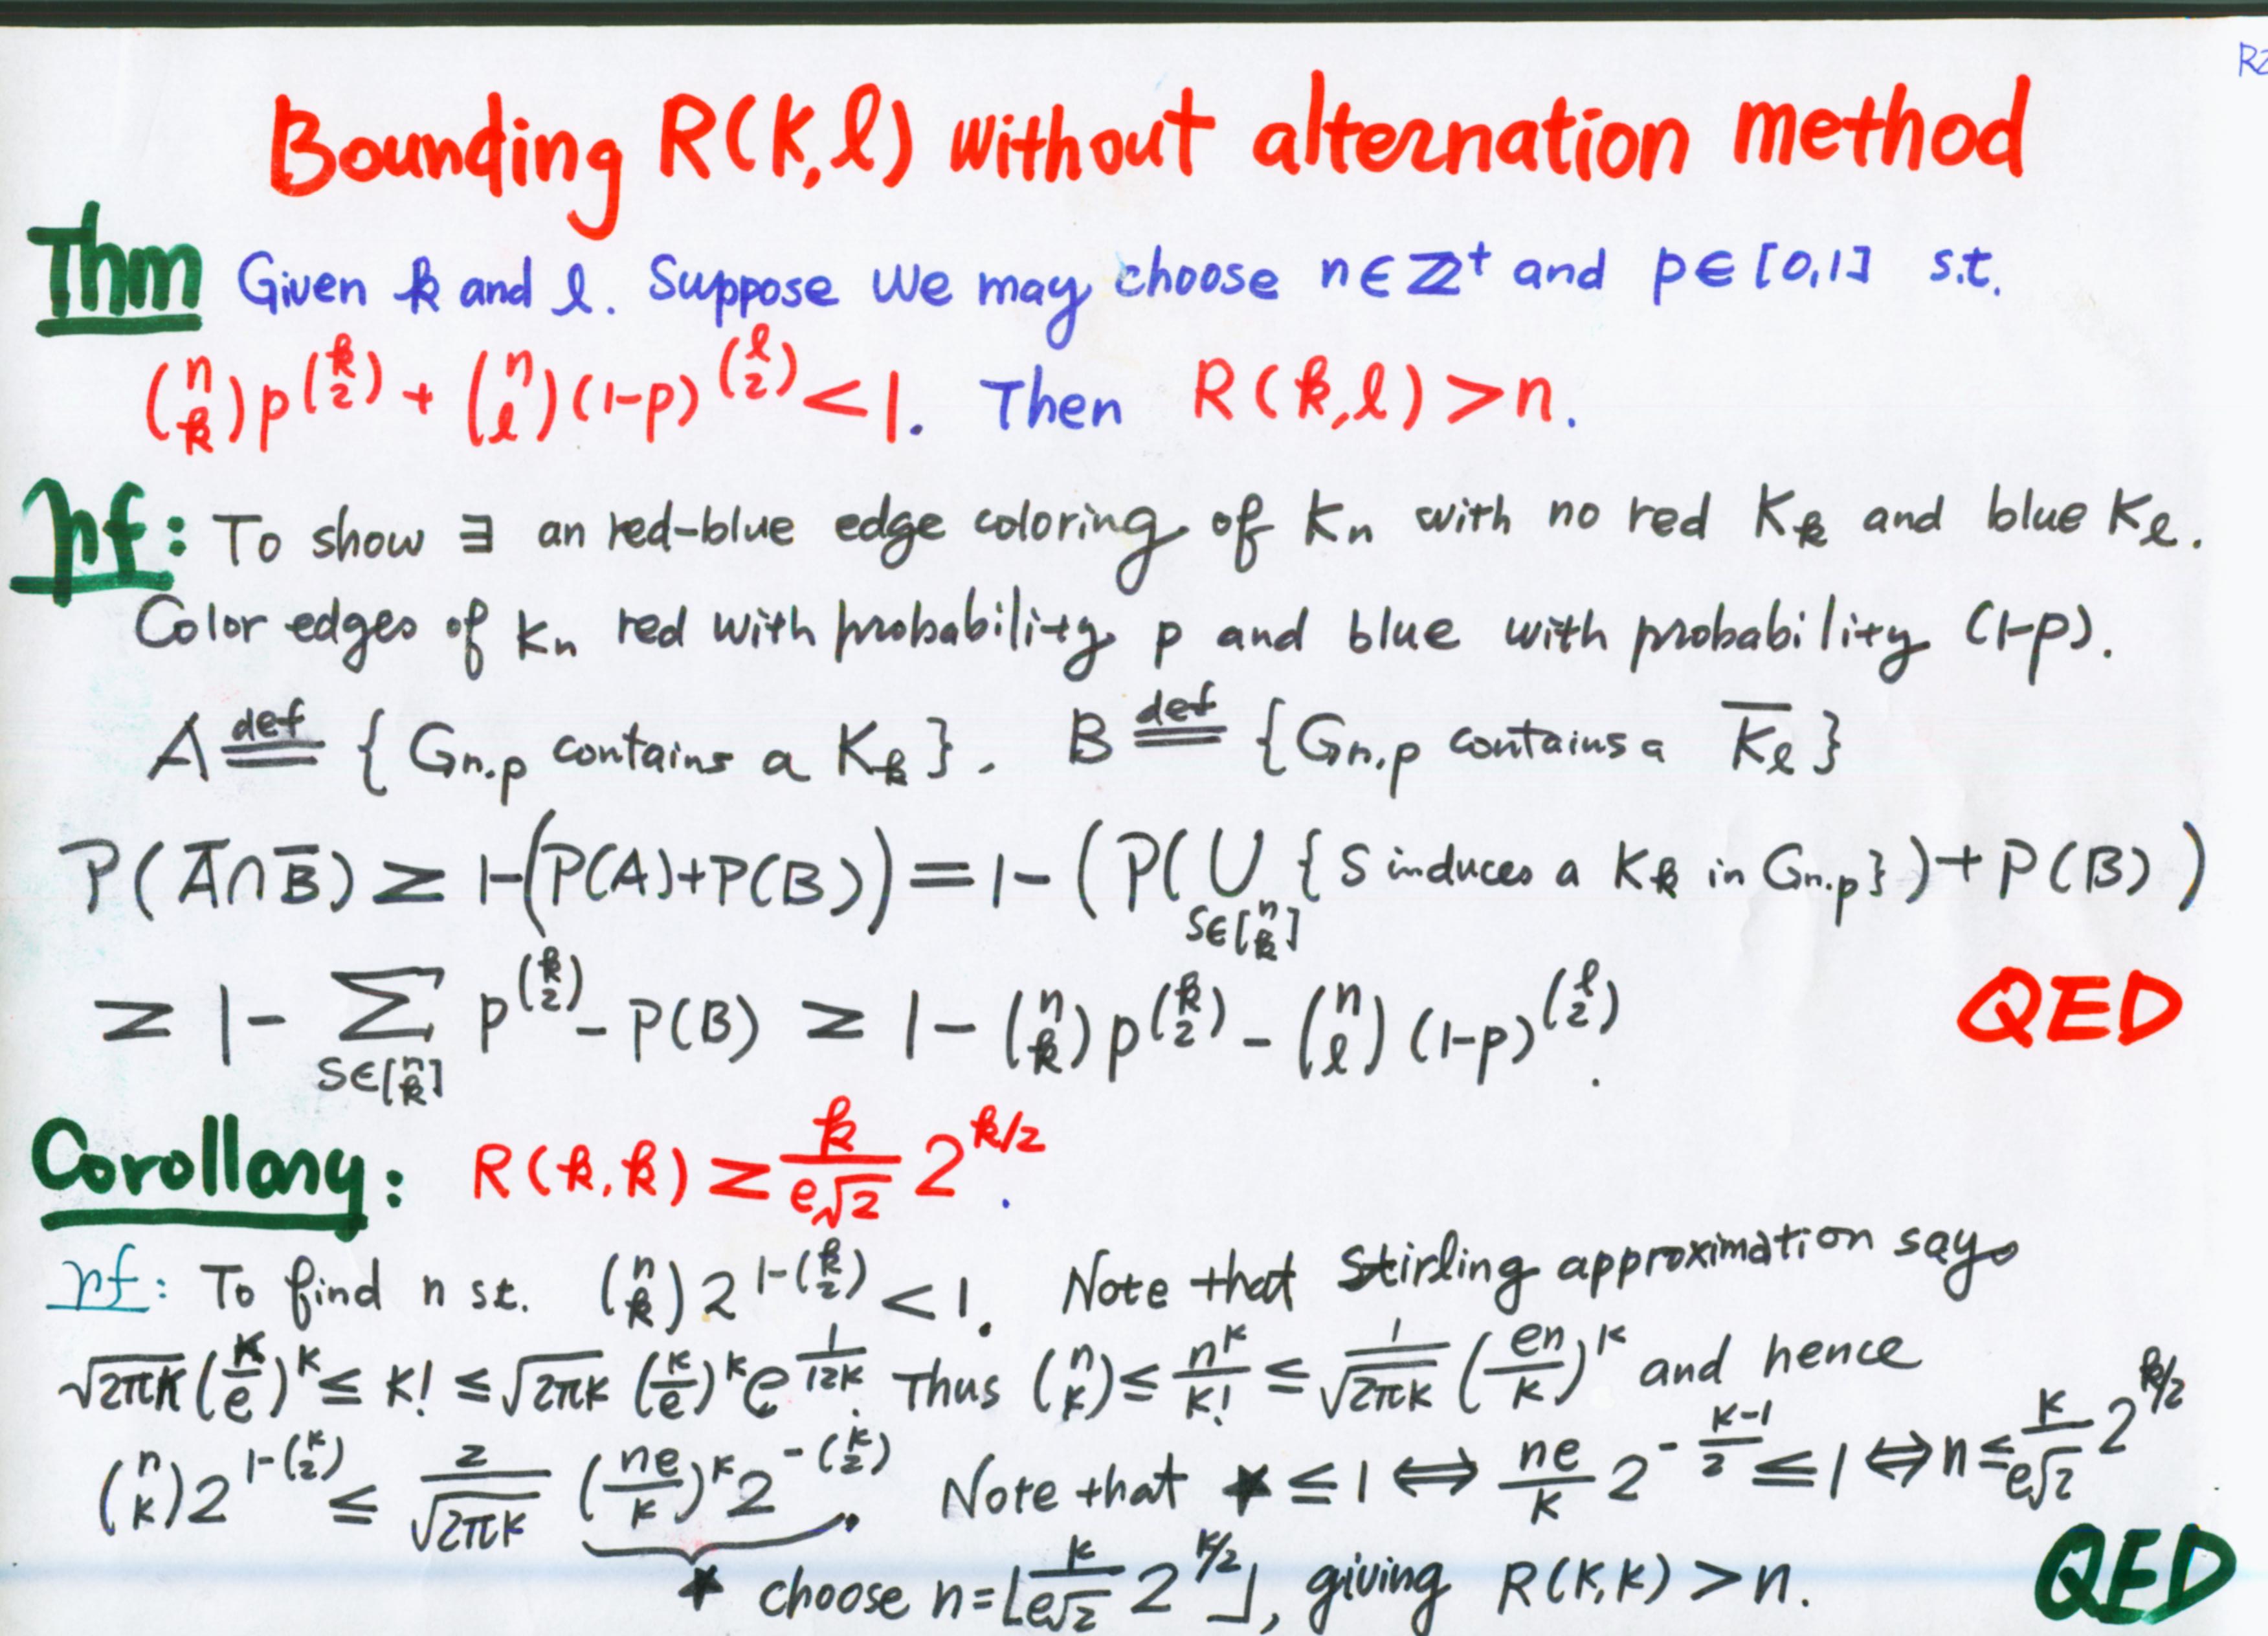 R2
Bounding R(k,ℓ) without alternation method
Thm Given k and ℓ. Suppose we may choose n∈ℤ⁺ and p∈[0,1] s.t.
(n k) p^(k 2) + (n ℓ)(1-p)^(ℓ 2) < 1. Then R(k,ℓ) > n.
pf: To show ∃ an red-blue edge coloring of Kn with no red Kk and blue Kℓ.
Color edges of Kn red with probability p and blue with probability (1-p).
A =def= { Gn.p contains a Kk }. B =def= { Gn.p contains a K̅ℓ }
P(A̅∩B̅) ≥ 1-(P(A)+P(B)) = 1 - (P(∪_{S∈[n k]} {S induces a Kk in Gn.p}) + P(B))
≥ 1 - Σ_{S∈[n k]} p^(k 2) - P(B) ≥ 1 - (n k) p^(k 2) - (n ℓ) (1-p)^(ℓ 2). QED
Corollary: R(k,k) ≥ k/(e√2) 2^{k/2}.
pf: To find n st. (n k) 2^{1-(k 2)} < 1. Note that Stirling approximation says
√(2πk) (k/e)^k ≤ k! ≤ √(2πk) (k/e)^k e^{1/12k}. Thus (n k) ≤ n^k/k! ≤ 1/√(2πk) (en/k)^k and hence
(n k) 2^{1-(k 2)} ≤ 2/√(2πk) (ne/k)^k 2^{-(k 2)}. Note that ★ ≤ 1 ⟺ ne/k 2^{-(k-1)/2} ≤ 1 ⟺ n ≤ k/(e√2) 2^{k/2}
★ choose n = ⌊k/(e√2) 2^{k/2}⌋, giving R(k,k) > n. QED